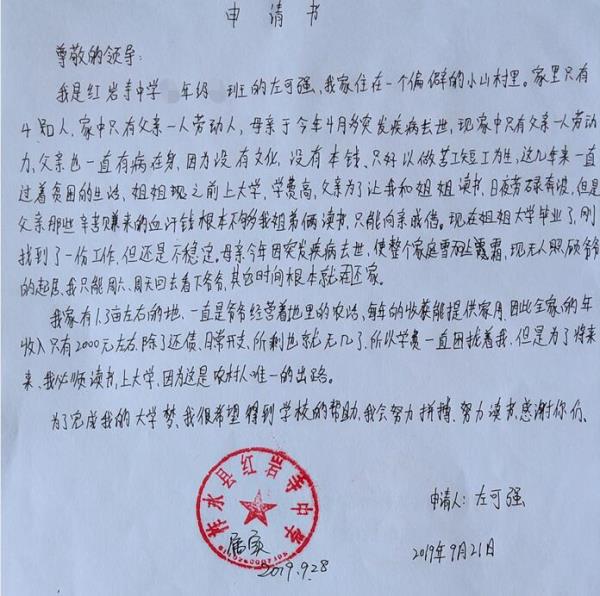 申请书
尊敬的领导:
我是红岩寺中学 年级 班的左可强,我家住在一个偏僻的小山村里。家里只有
4口人,家中只有父亲一人劳动人,母亲于今年4月多突发疾病去世,现家中只有父亲一人劳动
力,父亲也一直有病在身,因为没有文化,没有本钱,只好以做苦工短工为生,这几年来一直
过着贫困的生活,姐姐现之前上大学,学费高,父亲为了让我和姐姐读书,日夜劳碌奔波,但是
父亲那些辛苦赚来的血汗钱根本不够我姐弟俩读书,只能向亲戚借。现在姐姐大学毕业了,刚
找到了一份工作,但还是不稳定。母亲今年因突发疾病去世,使整个家庭雪加上霜,现无人照顾爷爷
的起居,我只能周六、周天回去看下爷爷,其它时间根本就回不了家。
我家有1.3亩左右的地,一直是爷爷经营着地里的农活,每年的收获能提供家用,因此全家的年
收入只有2000元左右,除了还债、日常开支,所剩也就无几了,所以学费一直困扰着我,但是为了将来
来,我必须读书,上大学,因为这是农村人唯一的出路。
为了完成我的大学梦,我很希望得到学校的帮助,我会努力拼搏、努力读书,感谢你们。
柞水县红岩寺中学
属实
2019.9.28
申请人:左可强
2019年9月21日